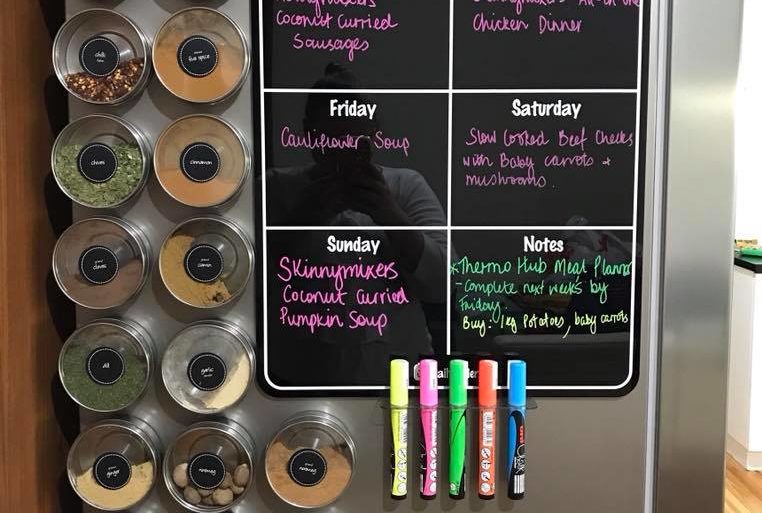 Coconut Curried
Sausages
Chicken Dinner
Friday
Cauliflower Soup
Saturday
Slow Cooked Beef Cheeks
with Baby carrots +
mushrooms.
Sunday
Skinnymixers
Coconut Curried
Pumpkin Soup
Notes
*Thermo Hub Meal Planner
- Complete next weeks by
Friday.
Buy: 1kg Potatoes, baby carrots
chilli
five spice
chives
cinnamon
cloves
cumin
dill
garlic
ginger
nutmeg